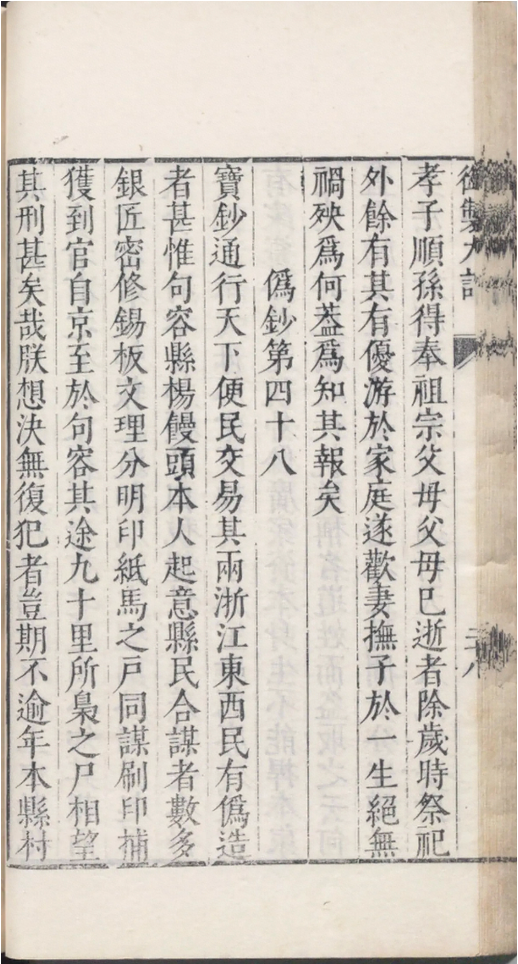 御製大誥
孝子順孫得奉祖宗父母父母已逝者除歲時祭祀
外餘有其有優游於家庭遂歡妻撫子於一生絕無
禍殃爲何葢爲知其報矣
僞鈔第四十八
寶鈔通行天下便民交易其兩浙江東西民有僞造
者甚惟句容縣楊饅頭本人起意縣民合謀者數多
銀匠密修錫板文理分明印紙馬之戸同謀刷印捕
獲到官自京至於句容其途九十里所梟之尸相望
其刑甚矣哉朕想決無復犯者豈期不逾年本縣村